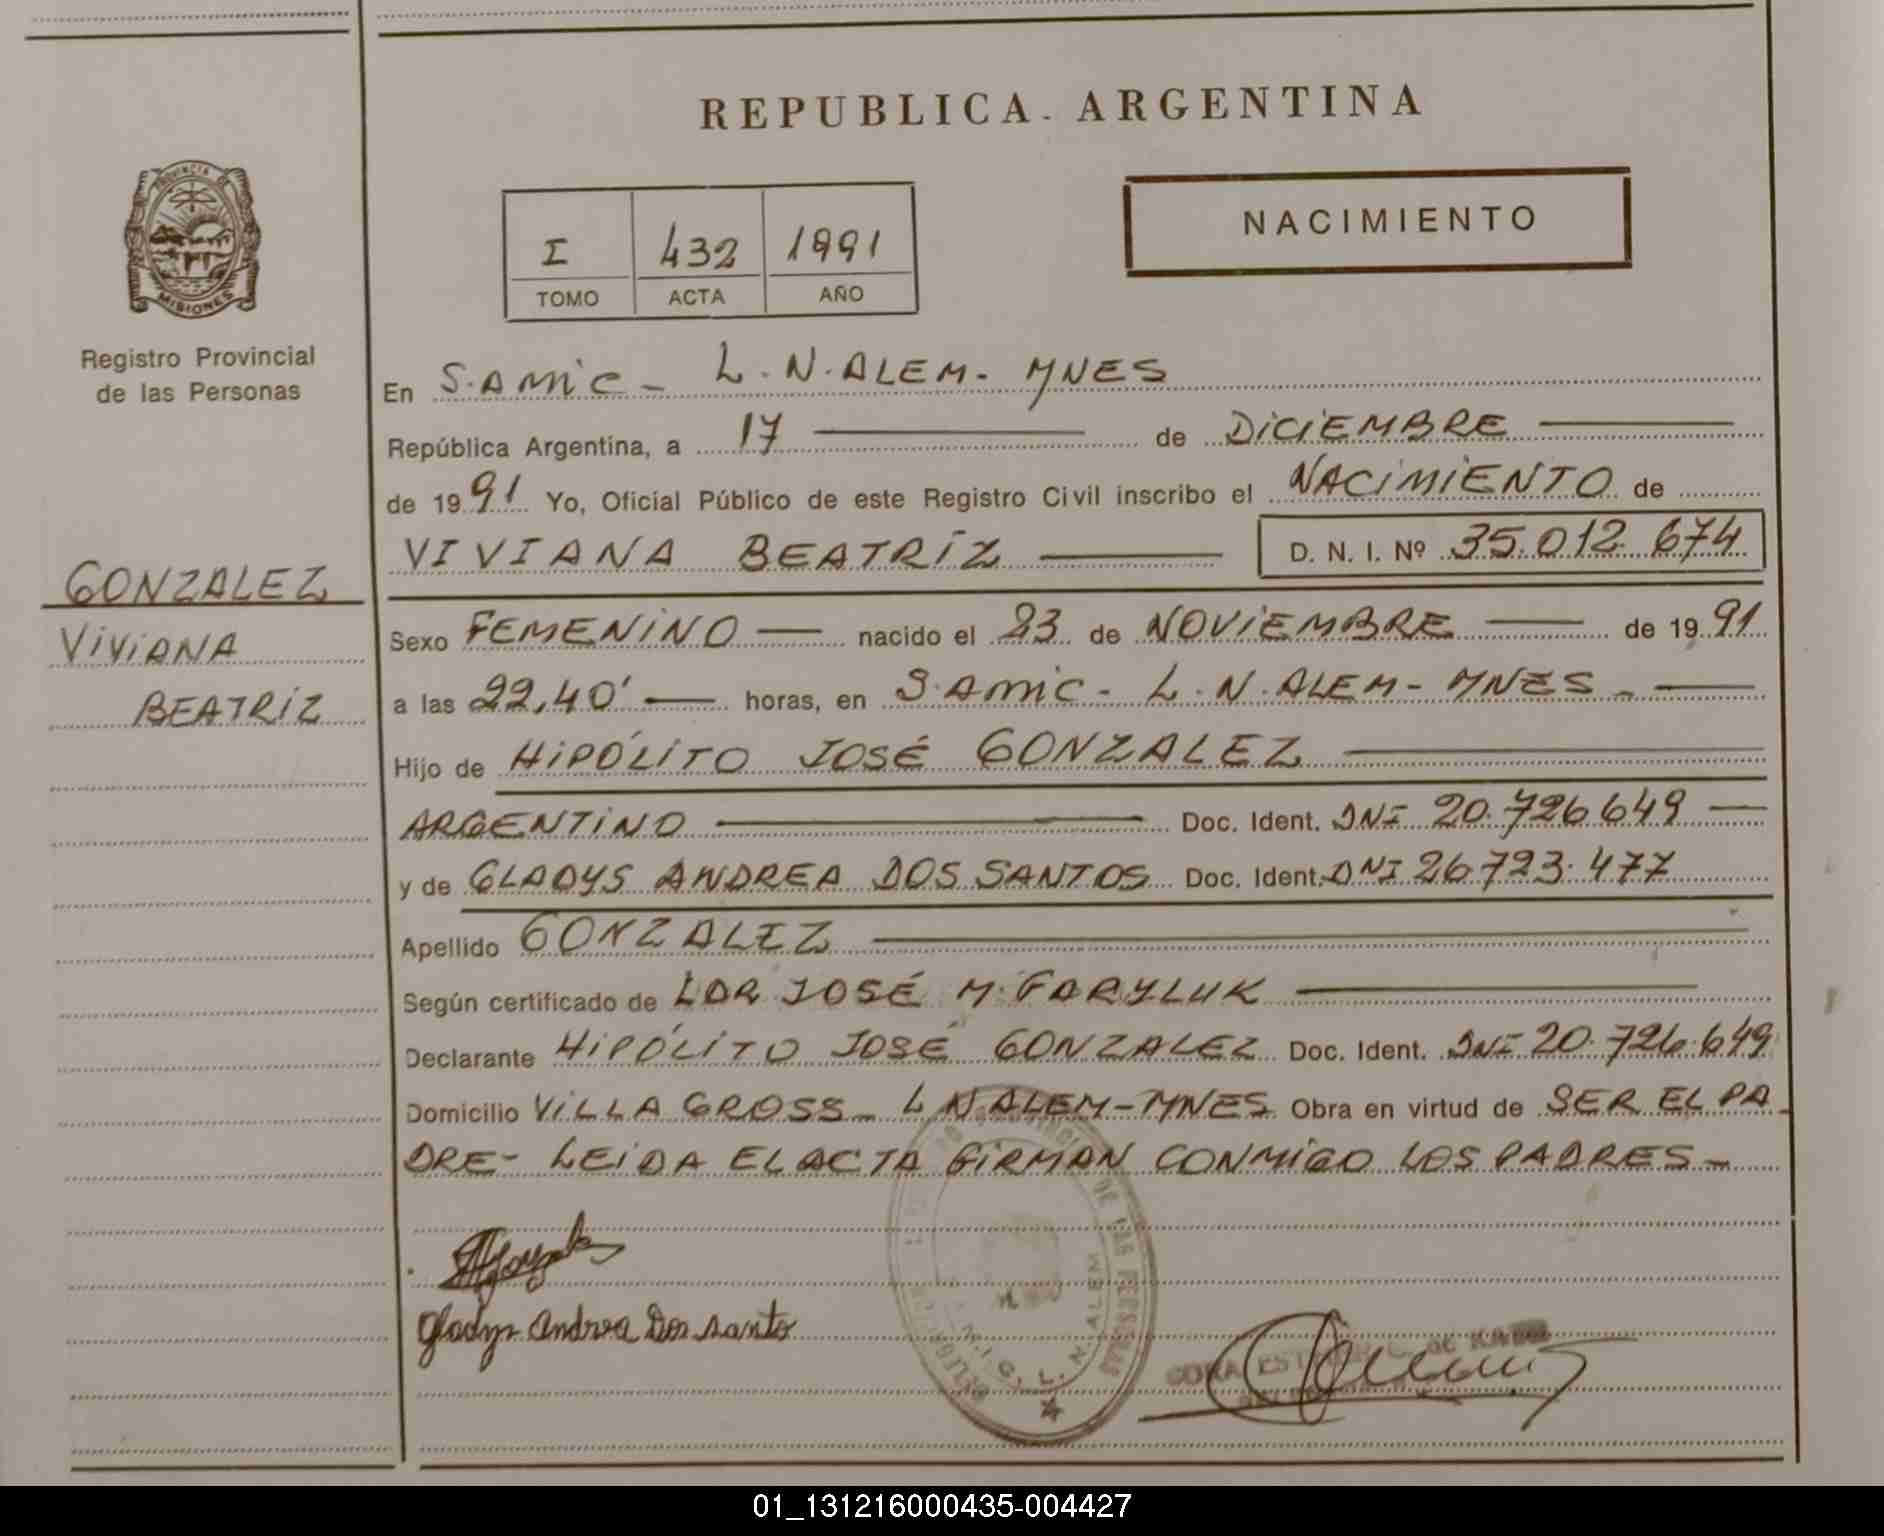 REPUBLICA ARGENTINA
PROVINCIA DE
MISIONES
Registro Provincial
de las Personas
NACIMIENTO
I 432 1991
TOMO ACTA AÑO
En S.AMIC - L.N.ALEM - MNES
República Argentina, a 17 de DICIEMBRE
de 1991 Yo, Oficial Público de este Registro Civil inscribo el NACIMIENTO de
VIVIANA BEATRIZ D. N. I. Nº 35.012.674
GONZALEZ
VIVIANA
BEATRIZ
Sexo FEMENINO nacido el 23 de NOVIEMBRE de 1991
a las 22,40' horas, en S.AMIC - L.N.ALEM - MNES -
Hijo de HIPÓLITO JOSÉ GONZALEZ
ARGENTINO Doc. Ident. DNI 20.726649
y de GLADYS ANDREA DOS SANTOS Doc. Ident. DNI 26723.477
Apellido GONZALEZ
Según certificado de JOSÉ M.
Declarante HIPÓLITO JOSÉ GONZALEZ Doc. Ident. DNI 20.726.649
Domicilio VILLA GROSS - L N ALEM - MNES Obra en virtud de SER EL PA-
DRE - LEIDA EL ACTA FIRMAN CONMIGO LOS PADRES -
Gladys Andrea Dos santo
DE LAS PERSONAS
L. N. ALEM
01_131216000435-004427